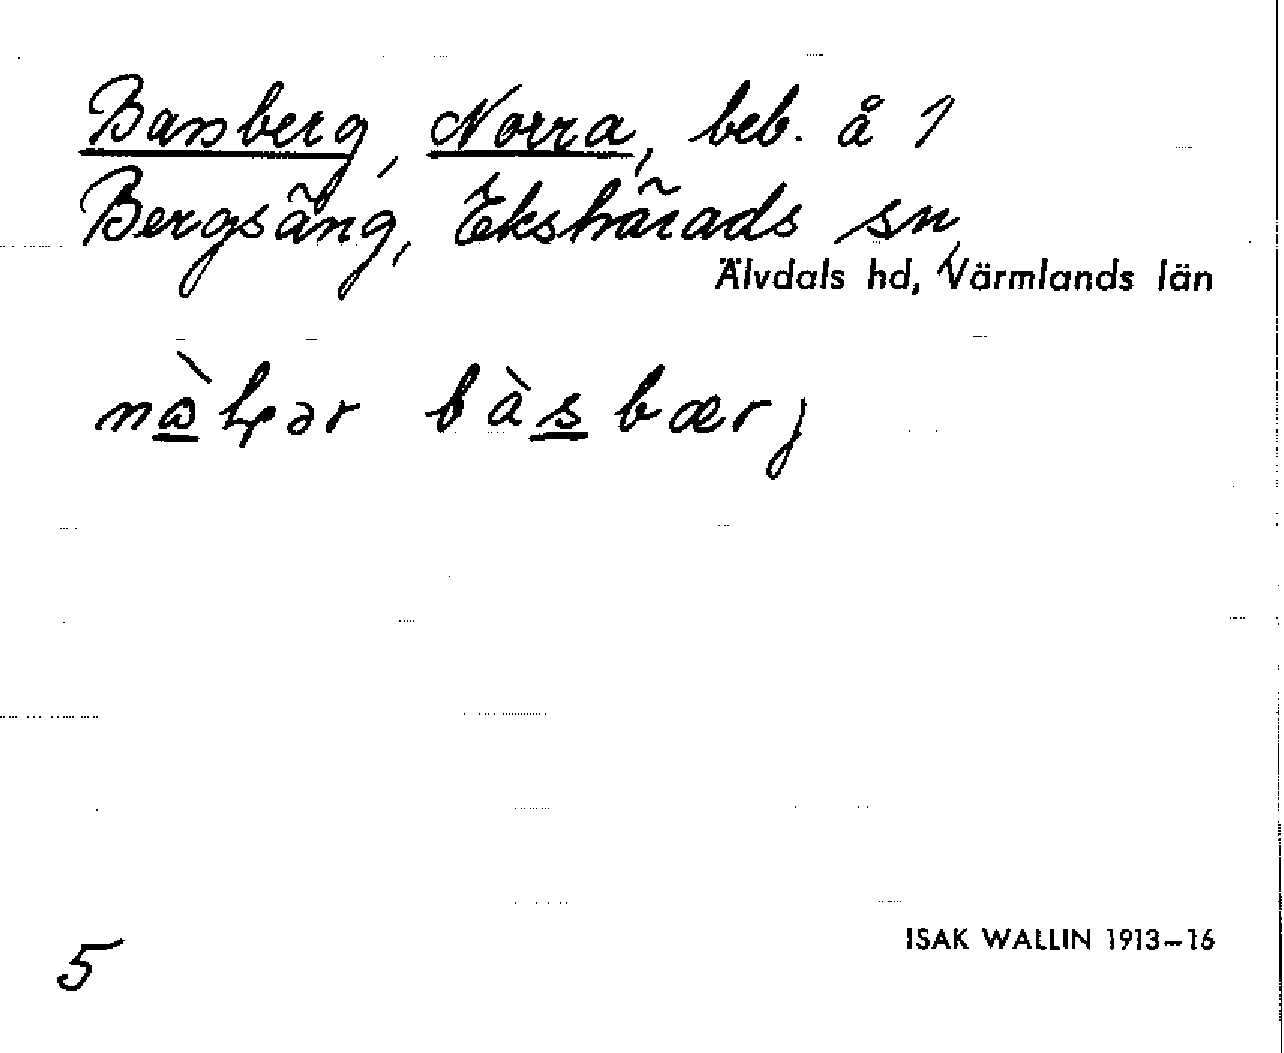 Basberg, Norra, beb. å 1
Bergsäng, Ekshärads sn
Älvdals hd, Värmlands län
bàs̲bærj
5
ISAK WALLIN 1913–16